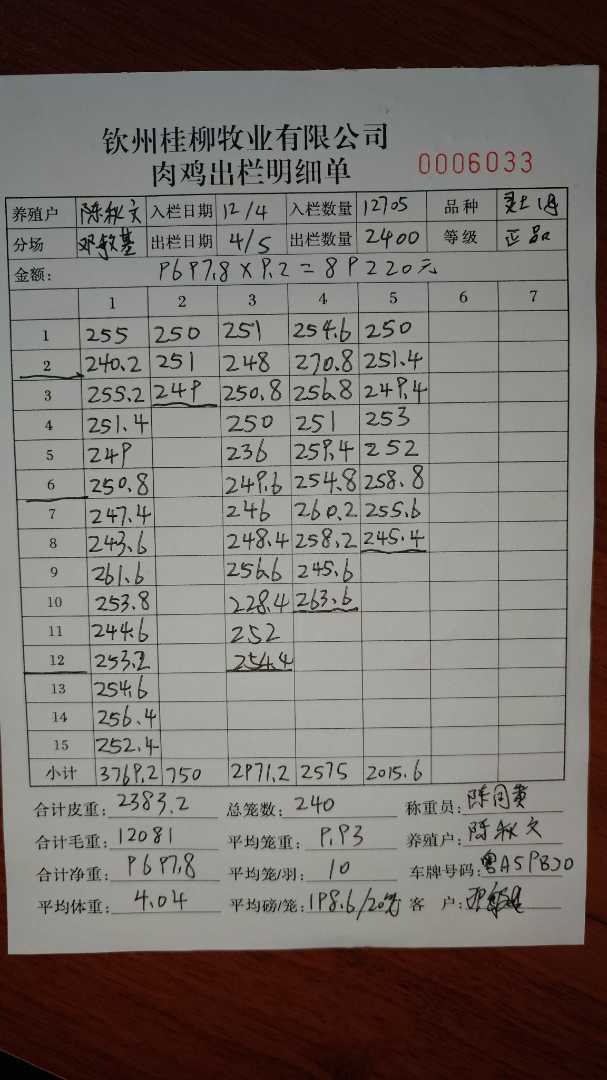 钦州桂柳牧业有限公司
肉鸡出栏明细单 0006033
养殖户 陈秋文 入栏日期 12/4 入栏数量 12705 品种
分场 邓敏基 出栏日期 4/5 出栏数量 2400 等级 正品
金额: 9697.8×9.2=89220元
1 2 3 4 5 6 7
1 255 250 251 254.6 250
2 240.2 251 248 270.8 251.4
3 255.2 249 250.8 256.8 249.4
4 251.4 250 251 253
5 249 236 259.4 252
6 250.8 249.6 254.8 258.8
7 247.4 246 260.2 255.6
8 243.6 248.4 258.2 245.4
9 261.6 256.6 245.6
10 253.8 228.4 263.6
11 244.6 252
12 253.2 254.4
13 254.6
14 256.4
15 252.4
小计 3769.2 750 2971.2 2575 2015.6
合计皮重: 2383.2 总笼数: 240 称重员:
合计毛重: 12081 平均笼重: 9.93 养殖户: 陈秋文
合计净重: 9697.8 平均笼/羽: 10 车牌号码: 粤A59B30
平均体重: 4.04 平均磅/笼: 198.6/20 客户: